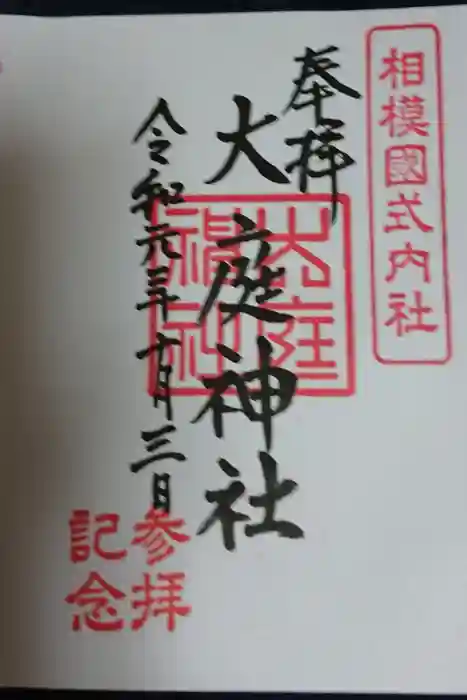 相模國式内社
奉拝
大庭神社
大庭神社
令和元年十月三日
参拝
記念